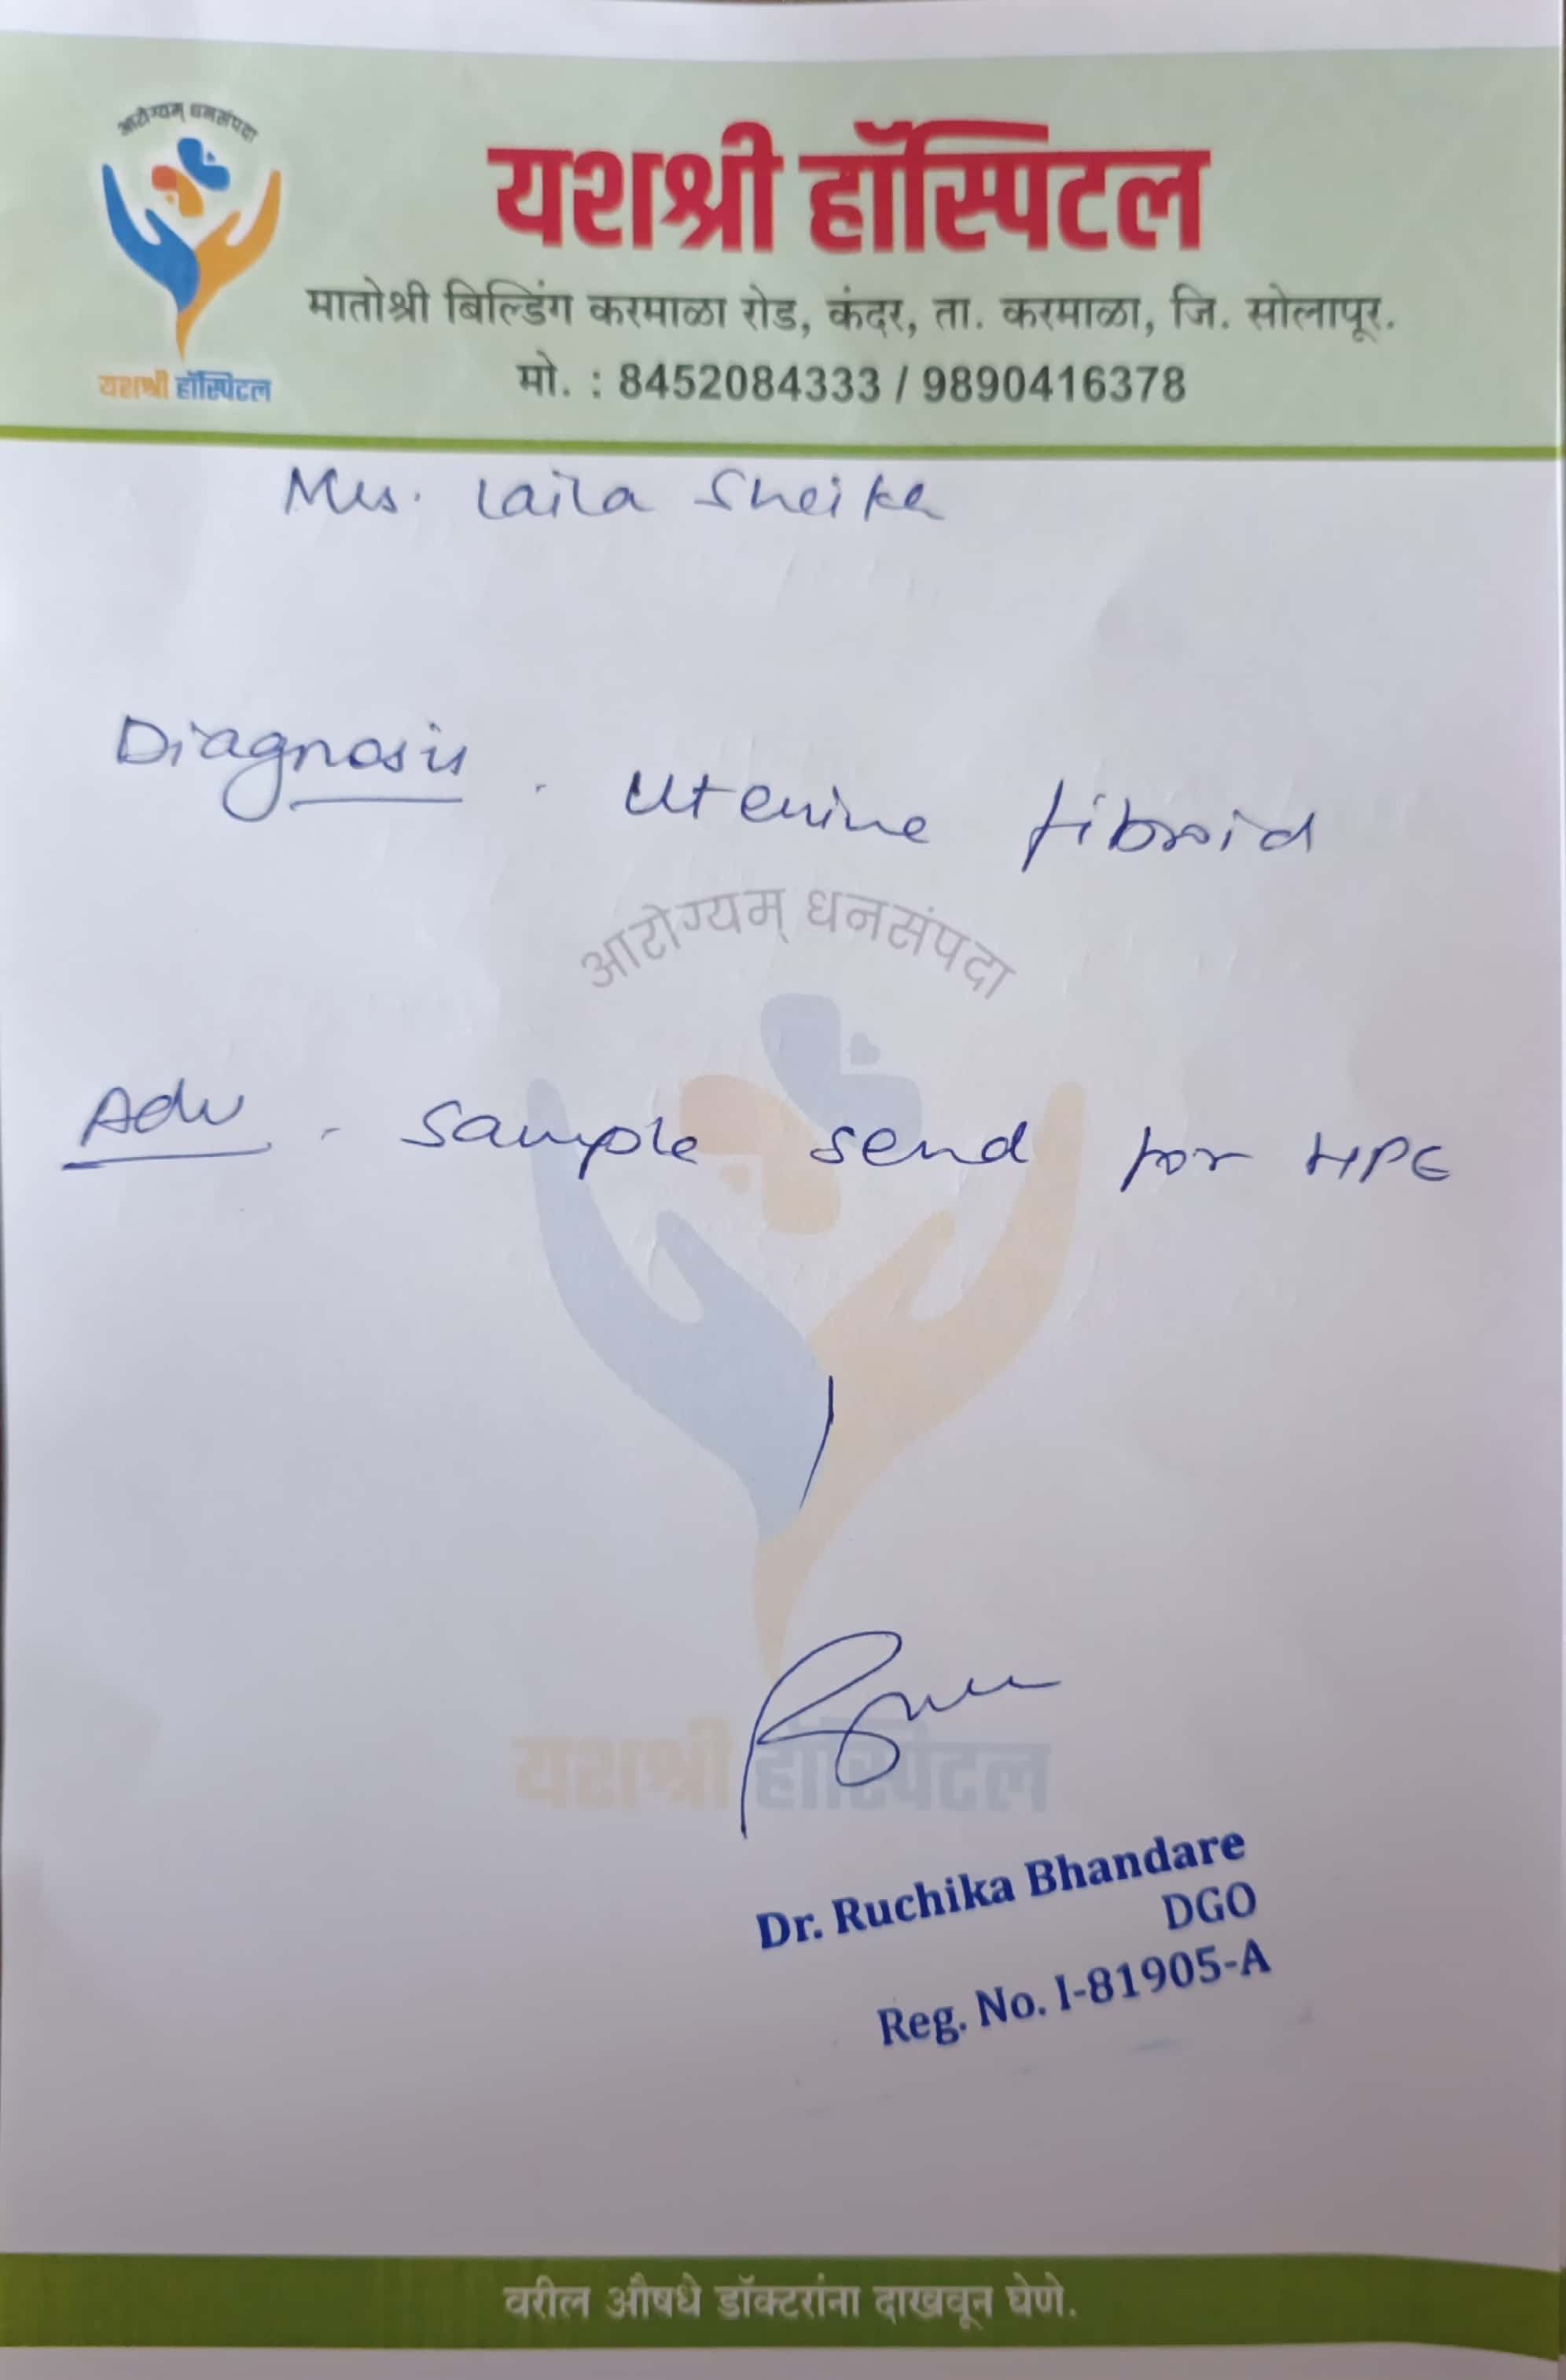 आरोग्यम् धनसंपदा
यशश्री हॉस्पिटल
मातोश्री बिल्डिंग करमाळा रोड, कंदर, ता. करमाळा, जि. सोलापूर.
यशश्री हॉस्पिटल
मो. : 8452084333 / 9890416378
Mrs. Laila Sheikh
Diagnosis. Uterine fibroid
आरोग्यम् धनसंपदा
Adv - Sample send for HPE
यशश्री हॉस्पिटल
Dr. Ruchika Bhandare
DGO
Reg. No. I-81905-A
वरील औषधे डॉक्टरांना दाखवून घेणे.